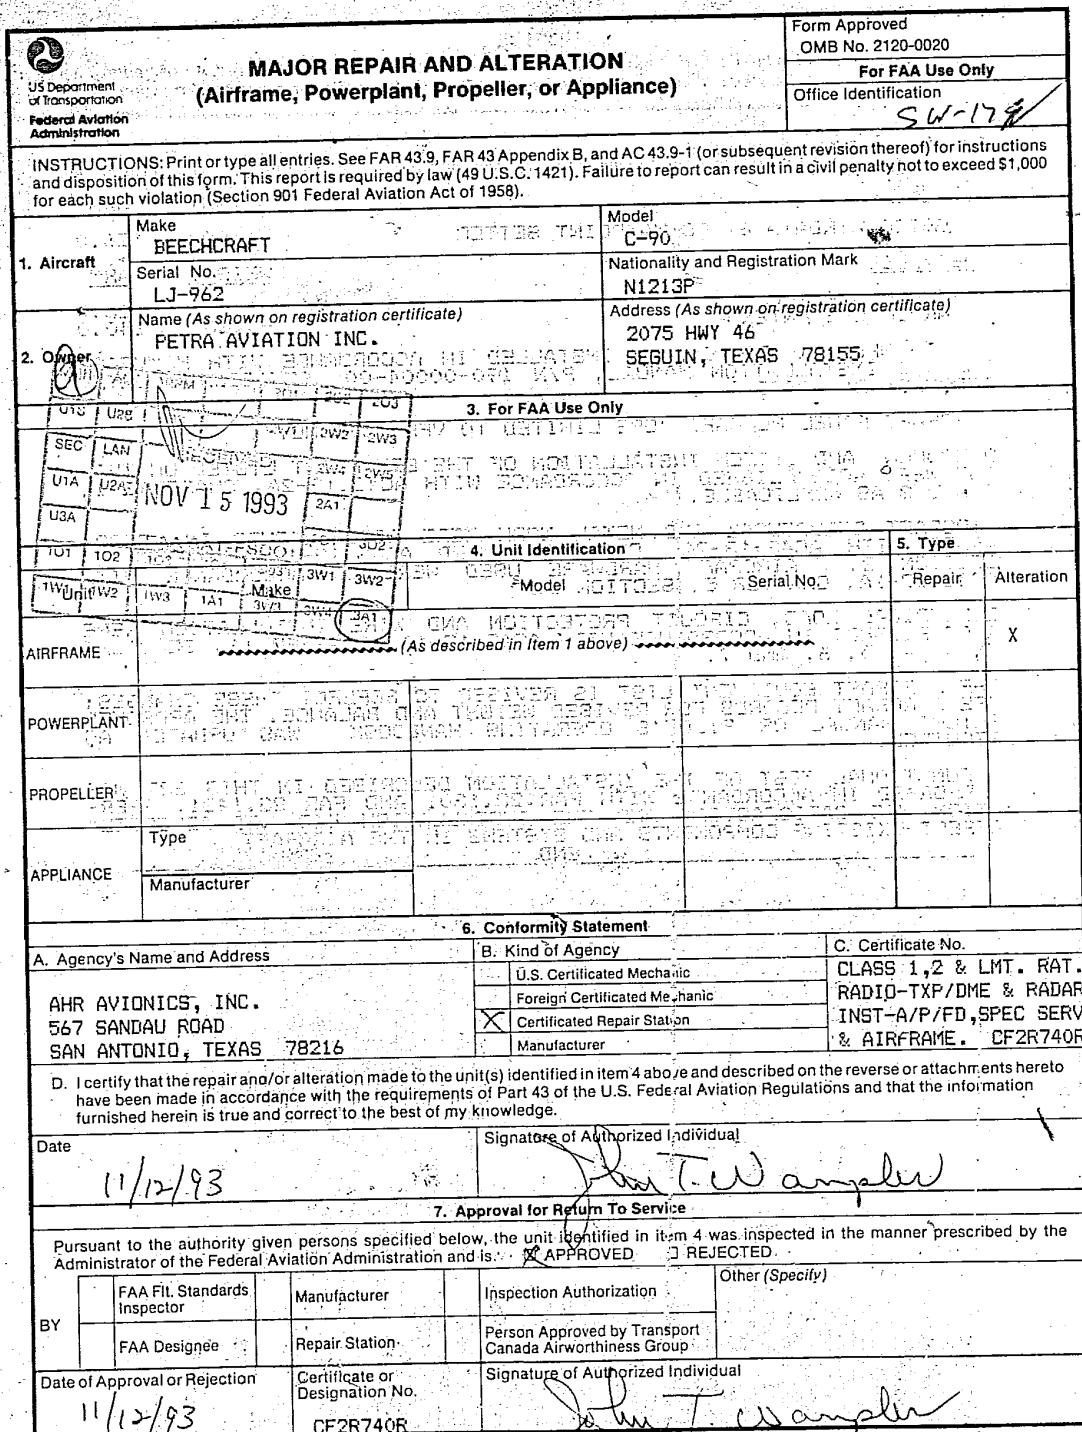 Form Approved
OMB No. 2120-0020
For FAA Use Only
Office Identification
SW-17
US Department
of Transportation
Federal Aviation
Administration
MAJOR REPAIR AND ALTERATION
(Airframe, Powerplant, Propeller, or Appliance)
INSTRUCTIONS: Print or type all entries. See FAR 43.9, FAR 43 Appendix B, and AC 43.9-1 (or subsequent revision thereof) for instructions
and disposition of this form. This report is required by law (49 U.S.C. 1421). Failure to report can result in a civil penalty not to exceed $1,000
for each such violation (Section 901 Federal Aviation Act of 1958).
1. Aircraft
Make
BEECHCRAFT
Model
C-90
Serial No.
LJ-962
Nationality and Registration Mark
N1213P
2. Owner
Name (As shown on registration certificate)
PETRA AVIATION INC.
Address (As shown on registration certificate)
2075 HWY 46
SEGUIN, TEXAS 78155
3. For FAA Use Only
2O3
U1S U2S 2W2 2W3
SEC LAN 2W4 2W5
U1A U2A NOV 15 1993 2A1
U3A
1O1 1O2 3O2
3W1 3W2
1W2 1W3 1A1 3W3 3W4 3A1
4. Unit Identification
5. Type
Unit Make Model Serial No. Repair Alteration
AIRFRAME
(As described in Item 1 above)
X
POWERPLANT
PROPELLER
APPLIANCE
Type
Manufacturer
6. Conformity Statement
A. Agency's Name and Address
AHR AVIONICS, INC.
567 SANDAU ROAD
SAN ANTONIO, TEXAS 78216
B. Kind of Agency
U.S. Certificated Mechanic
Foreign Certificated Mechanic
X Certificated Repair Station
Manufacturer
C. Certificate No.
CLASS 1,2 & LMT. RAT.
RADIO-TXP/DME & RADAR
INST-A/P/FD,SPEC SERV
& AIRFRAME. CF2R740R
D. I certify that the repair and/or alteration made to the unit(s) identified in item 4 above and described on the reverse or attachments hereto
have been made in accordance with the requirements of Part 43 of the U.S. Federal Aviation Regulations and that the information
furnished herein is true and correct to the best of my knowledge.
Date
11/12/93
Signature of Authorized Individual
John T. Wampler
7. Approval for Return To Service
Pursuant to the authority given persons specified below, the unit identified in item 4 was inspected in the manner prescribed by the
Administrator of the Federal Aviation Administration and is X APPROVED REJECTED
BY
FAA Flt. Standards
Inspector
Manufacturer
Inspection Authorization
Other (Specify)
FAA Designee
Repair Station
Person Approved by Transport
Canada Airworthiness Group
Date of Approval or Rejection
11/12/93
Certificate or
Designation No.
CF2R740R
Signature of Authorized Individual
John T. Wampler